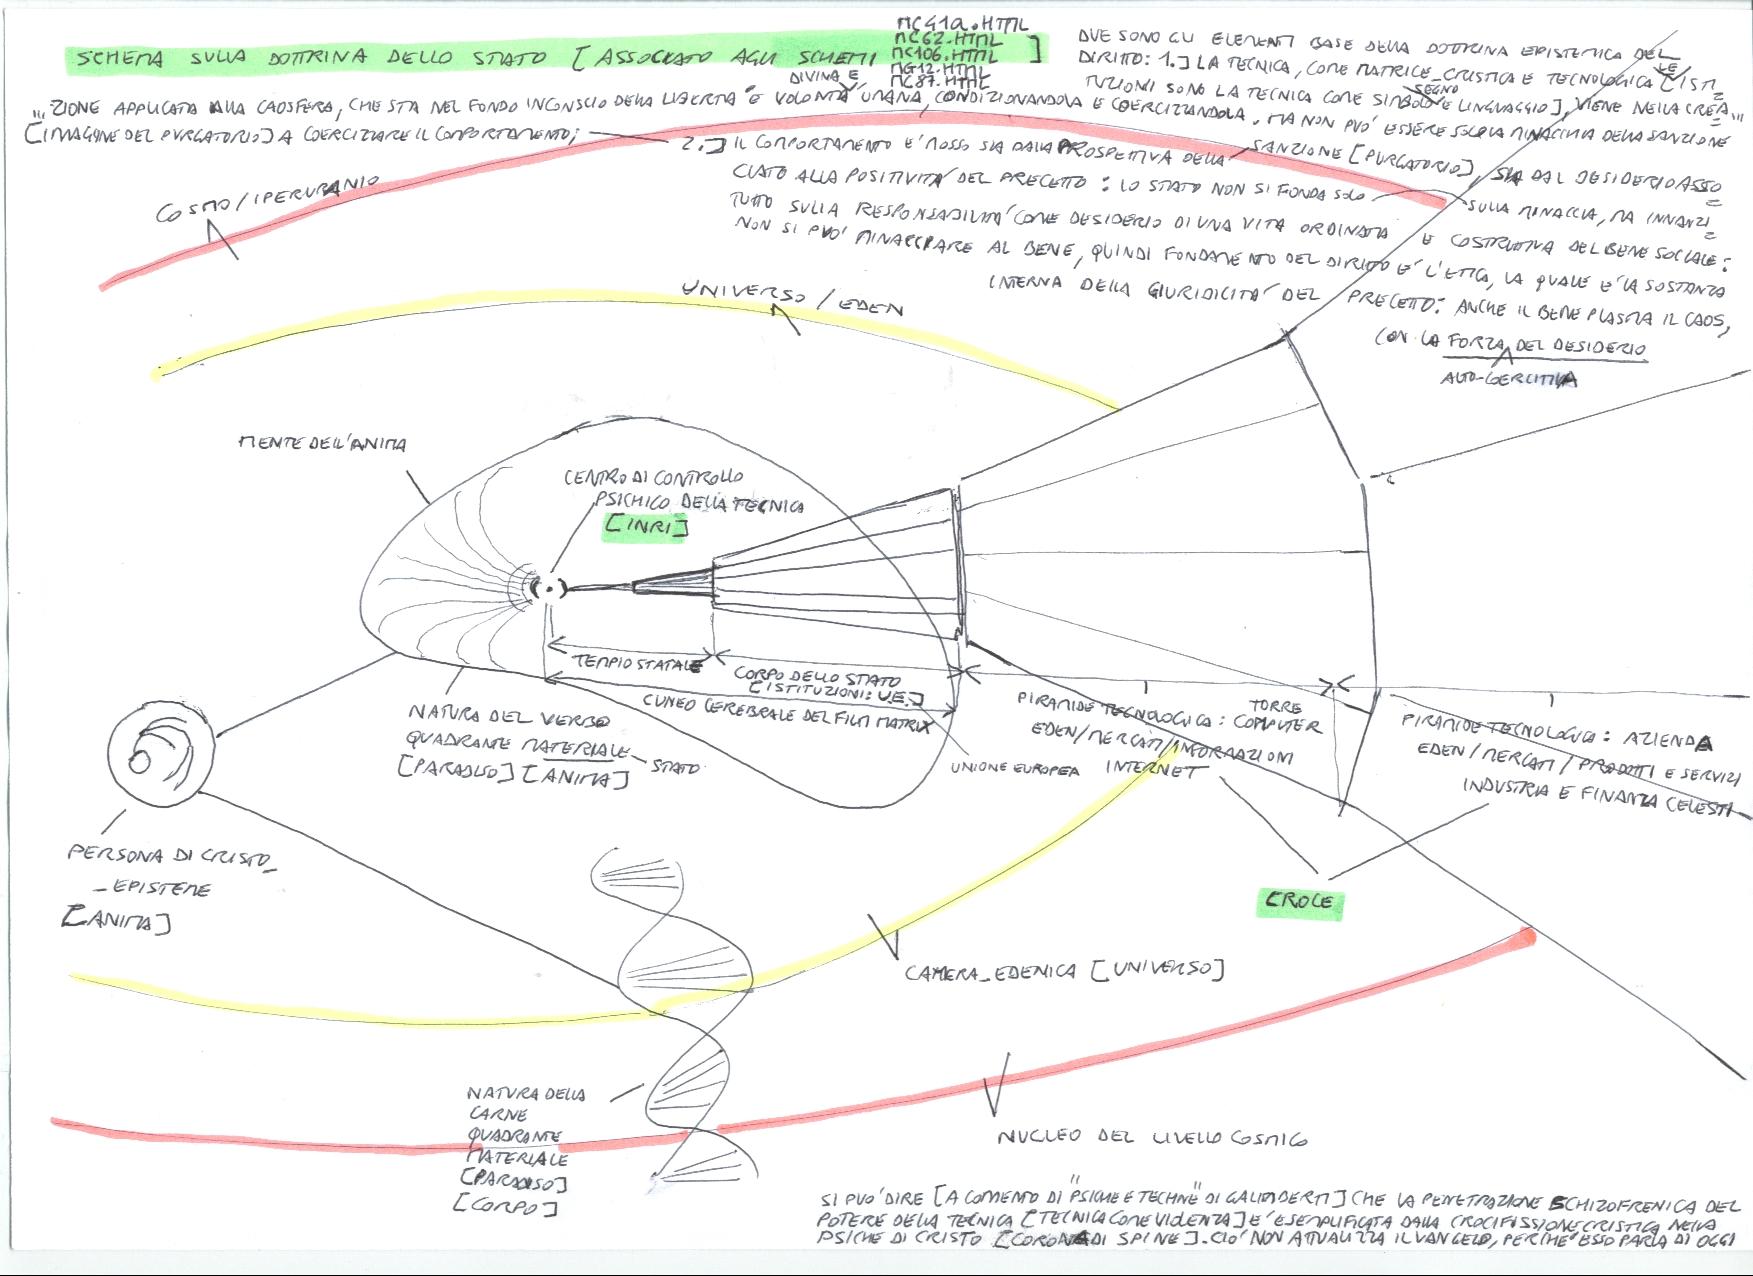 SCHEMA SULLA DOTTRINA DELLO STATO [ASSOCIATO AGLI SCHEMI
MC41a.HTML
MC62.HTML
MC106.HTML
MG12.HTML
MC87.HTML
]
DUE SONO GLI ELEMENTI BASE DELLA DOTTRINA EPISTEMICA DEL
DIRITTO: 1.] LA TECNICA, COME MATRICE_CRISTICA E TECNOLOGICA [LE ISTI=
TUZIONI SONO LA TECNICA COME SIMBOLO SEGNO E LINGUAGGIO], VIENE NELLA CREA...
DIVINA E
...ZIONE APPLICATA ALLA CAOSFERA, CHE STA NEL FONDO INCONSCIO DELLA LIBERTA' E VOLONTA' UMANA, CONDIZIONANDOLA E COERCIZZANDOLA. MA NON PUO' ESSERE SOLO LA MINACCIA DELLA SANZIONE
[IMMAGINE DEL PURGATORIO] A COERCIZZARE IL COMPORTAMENTO;
2.] IL COMPORTAMENTO E' MOSSO SIA DALLA PROSPETTIVA DELLA SANZIONE [PURGATORIO], SIA DAL DESIDERIO ASSO=
CIATO ALLA POSITIVITA' DEL PRECETTO: LO STATO NON SI FONDA SOLO SULLA MINACCIA, MA INNANZI=
TUTTO SULLA RESPONSABILITA' COME DESIDERIO DI UNA VITA ORDINATA E COSTRUTTIVA DEL BENE SOCIALE:
NON SI PUO' MINACCIARE AL BENE, QUINDI FONDAMENTO DEL DIRITTO E' L'ETICA, LA QUALE E' LA SOSTANZA
INTERNA DELLA GIURIDICITA' DEL PRECETTO: ANCHE IL BENE PLASMA IL CAOS,
CON LA FORZA DEL DESIDERIO
AUTO-COERCITIVA
COSMO/IPERURANIO
UNIVERSO/EDEN
MENTE DELL'ANIMA
CENTRO DI CONTROLLO
PSICHICO DELLA TECNICA
[INRI]
TEMPIO STATALE
CORPO DELLO STATO
[ISTITUZIONI: U.E.]
CUNEO CEREBRALE DEL FILM MATRIX
UNIONE EUROPEA
NATURA DEL VERBO
QUADRANTE MATERIALE
[PARADISO] [ANIMA]
STATO
PIRAMIDE TECNOLOGICA: COMPUTER
EDEN/MERCATI/INFORMAZIONI
INTERNET
TORRE
PIRAMIDE TECNOLOGICA: AZIENDA
EDEN/MERCATI/PRODOTTI E SERVIZI
INDUSTRIA E FINANZA CELESTI
CROCE
PERSONA DI CRISTO_
_EPISTEME
[ANIMA]
CAMERA_EDENICA [UNIVERSO]
NATURA DELLA
CARNE
QUADRANTE
MATERIALE
[PARADISO]
[CORPO]
NUCLEO DEL LIVELLO COSMICO
SI PUO' DIRE [A COMMENTO DI "PSICHE E TECHNE" DI GALIMBERTI] CHE LA PENETRAZIONE SCHIZOFRENICA DEL
POTERE DELLA TECNICA [TECNICA COME VIOLENZA] E' ESEMPLIFICATA DALLA CROCIFISSIONE CRISTICA NELLA
PSICHE DI CRISTO [CORONA DI SPINE]. CIO' NON ATTUALIZZA IL VANGELO, PERCHE' ESSO PARLA DI OGGI